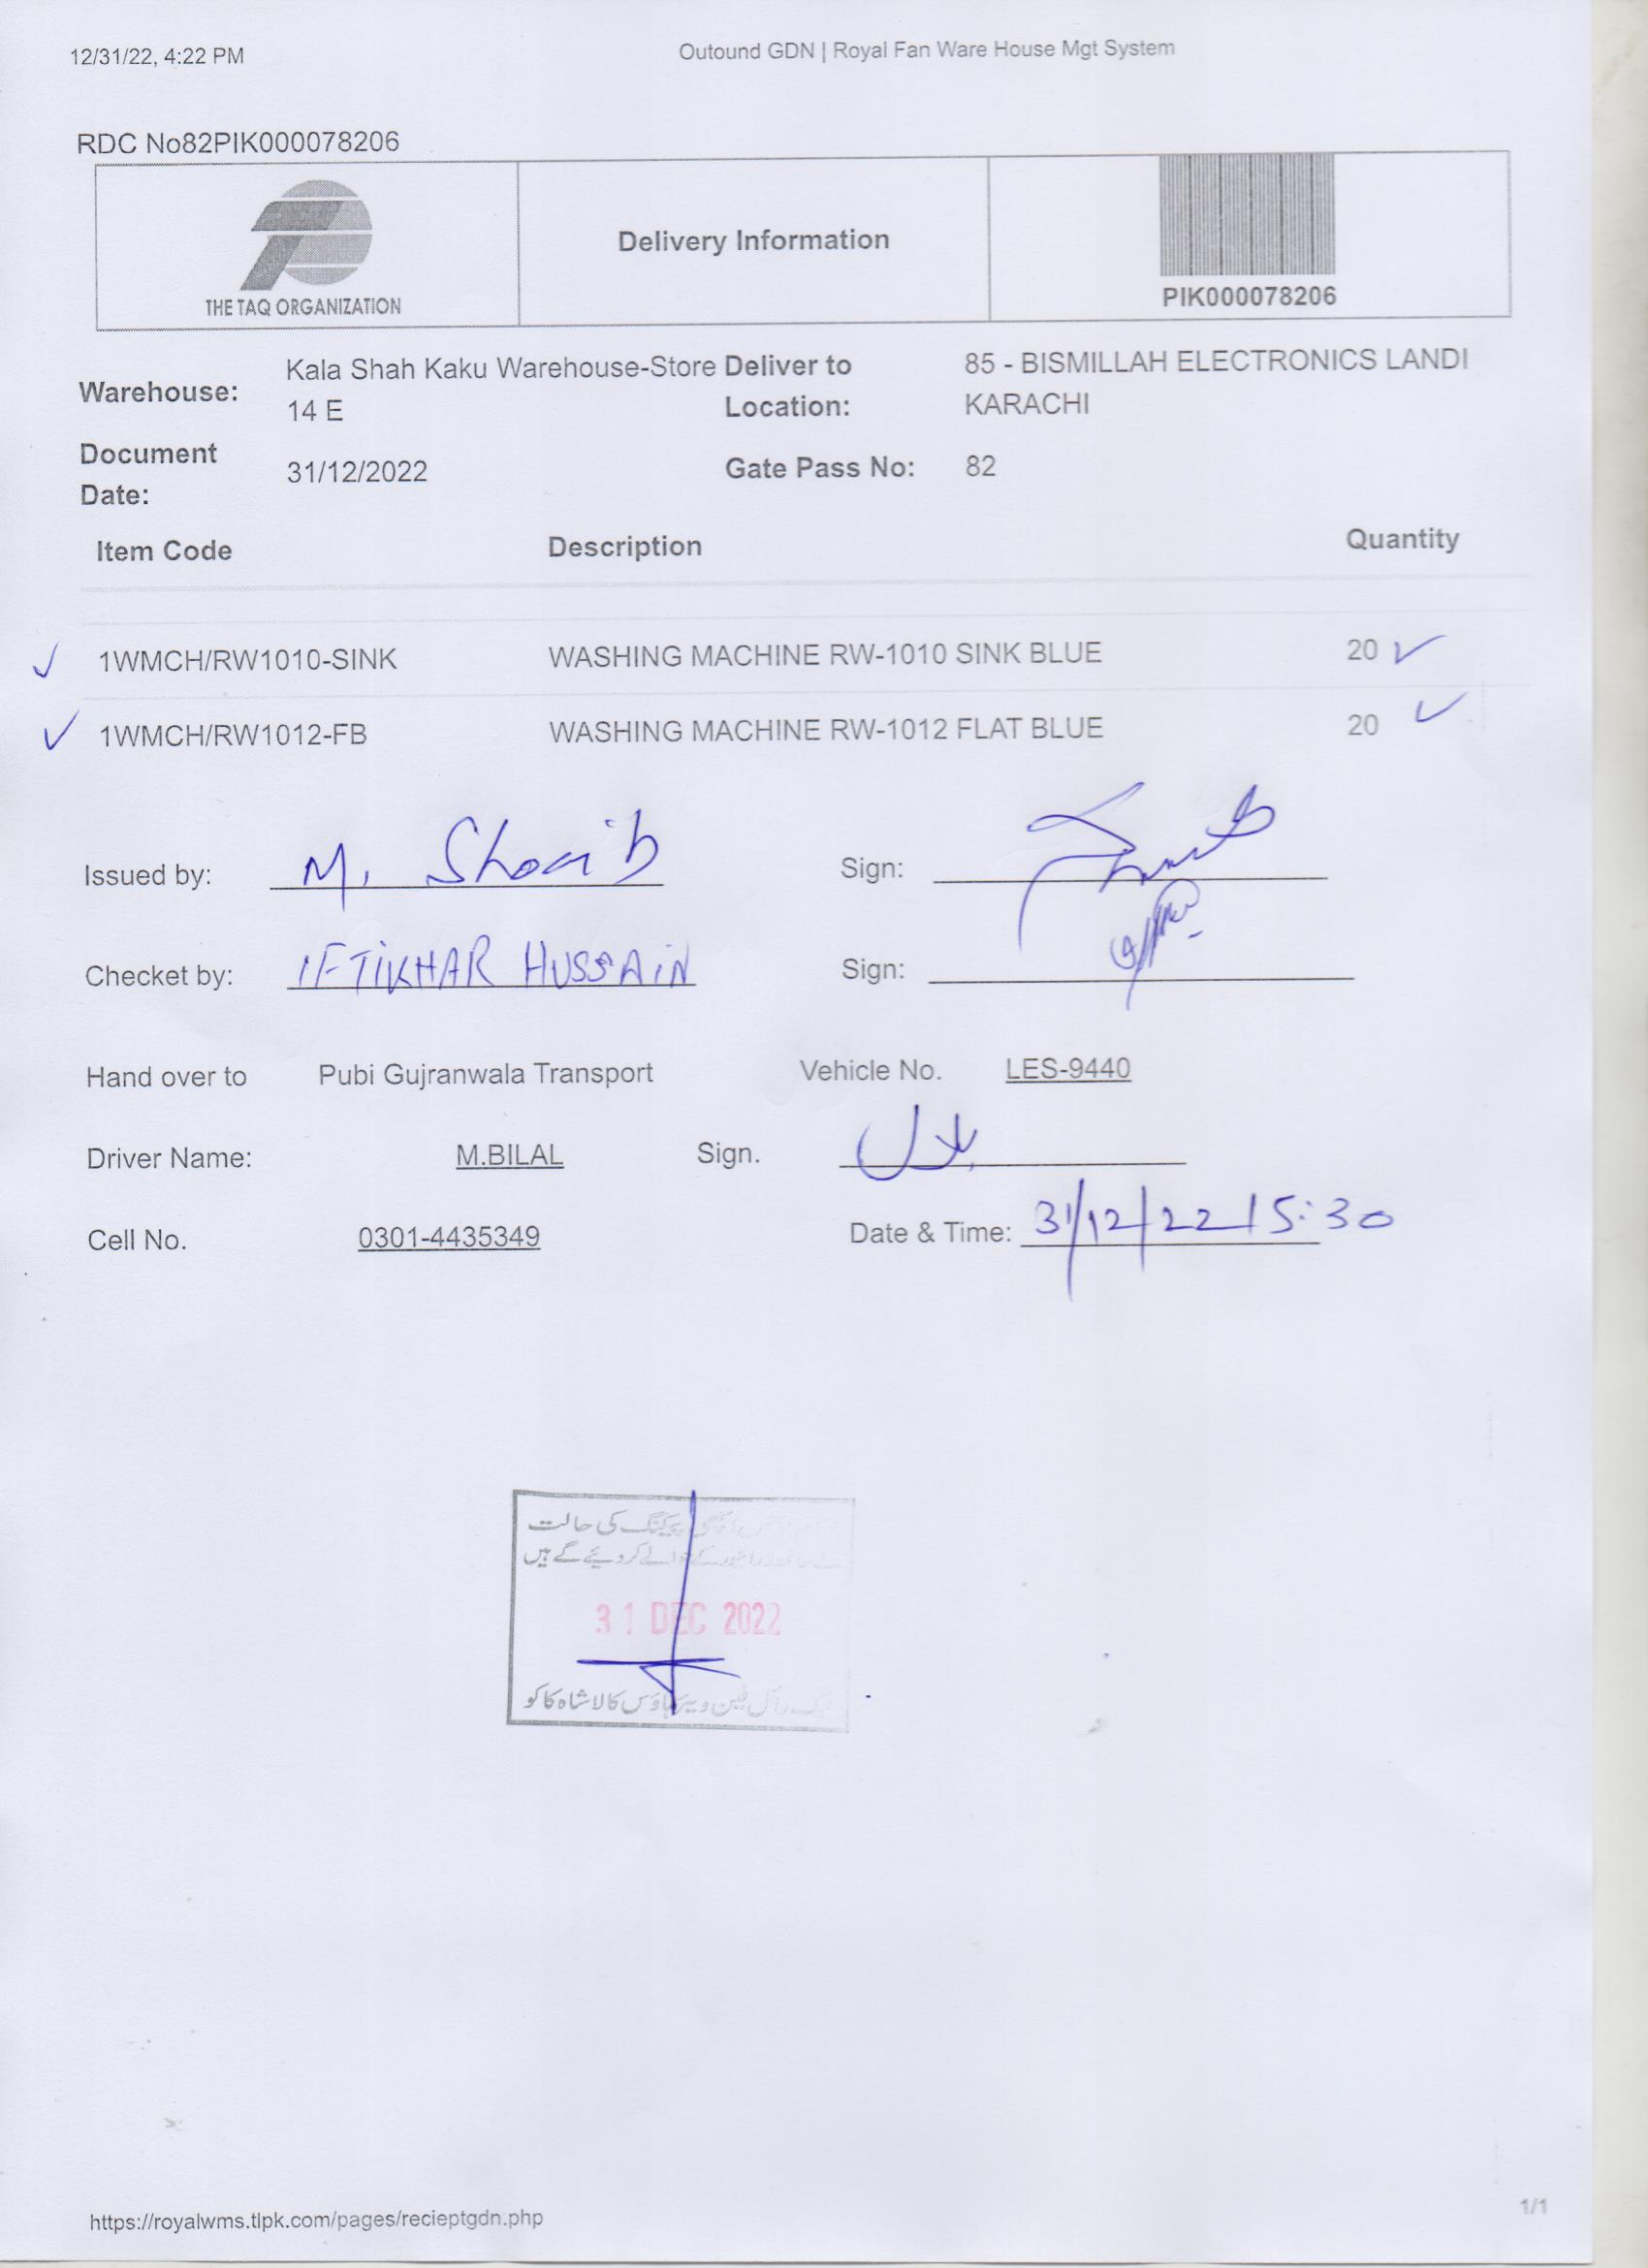 12/31/22, 4:22 PM
Outound GDN | Royal Fan Ware House Mgt System
RDC No82PIK000078206
THE TAQ ORGANIZATION
Delivery Information
PIK000078206
Warehouse: Kala Shah Kaku Warehouse-Store 14 E
Deliver to Location: 85 - BISMILLAH ELECTRONICS LANDI KARACHI
Document Date: 31/12/2022
Gate Pass No: 82
Item Code Description Quantity
1WMCH/RW1010-SINK WASHING MACHINE RW-1010 SINK BLUE 20
1WMCH/RW1012-FB WASHING MACHINE RW-1012 FLAT BLUE 20
Issued by: M. Shoaib Sign:
Checket by: IFTIKHAR HUSSAIN Sign:
Hand over to Pubi Gujranwala Transport Vehicle No. LES-9440
Driver Name: M.BILAL Sign. بلال
Cell No. 0301-4435349 Date & Time: 31/12/22 / 5:30
پیکنگ کی حالت
کے حوالے کردیئے گے ہیں
31 DEC 2022
فین ویئرہاؤس کالا شاہ کاکو
https://royalwms.tlpk.com/pages/recieptgdn.php
1/1